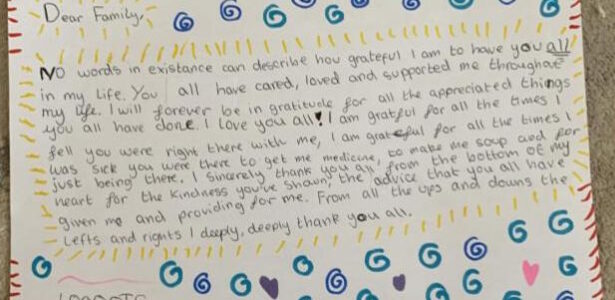 Dear Family,
No words in existance can describe how grateful I am to have you all
in my life. You all have cared, loved and supported me throughout
my life. I will forever be in gratitude for all the appreciated things
you all have done. I love you all! I am grateful for all the times I
fell you were right there with me, I am grateful for all the times I
was sick you were there to get me medicine, to make me soup and for
just being there. I sincerely thank you all, from the bottom of my
heart for the kindness you've shown, the advice that you all have
given me and providing for me. From all the ups and downs the
Lefts and rights I deeply, deeply thank you all.